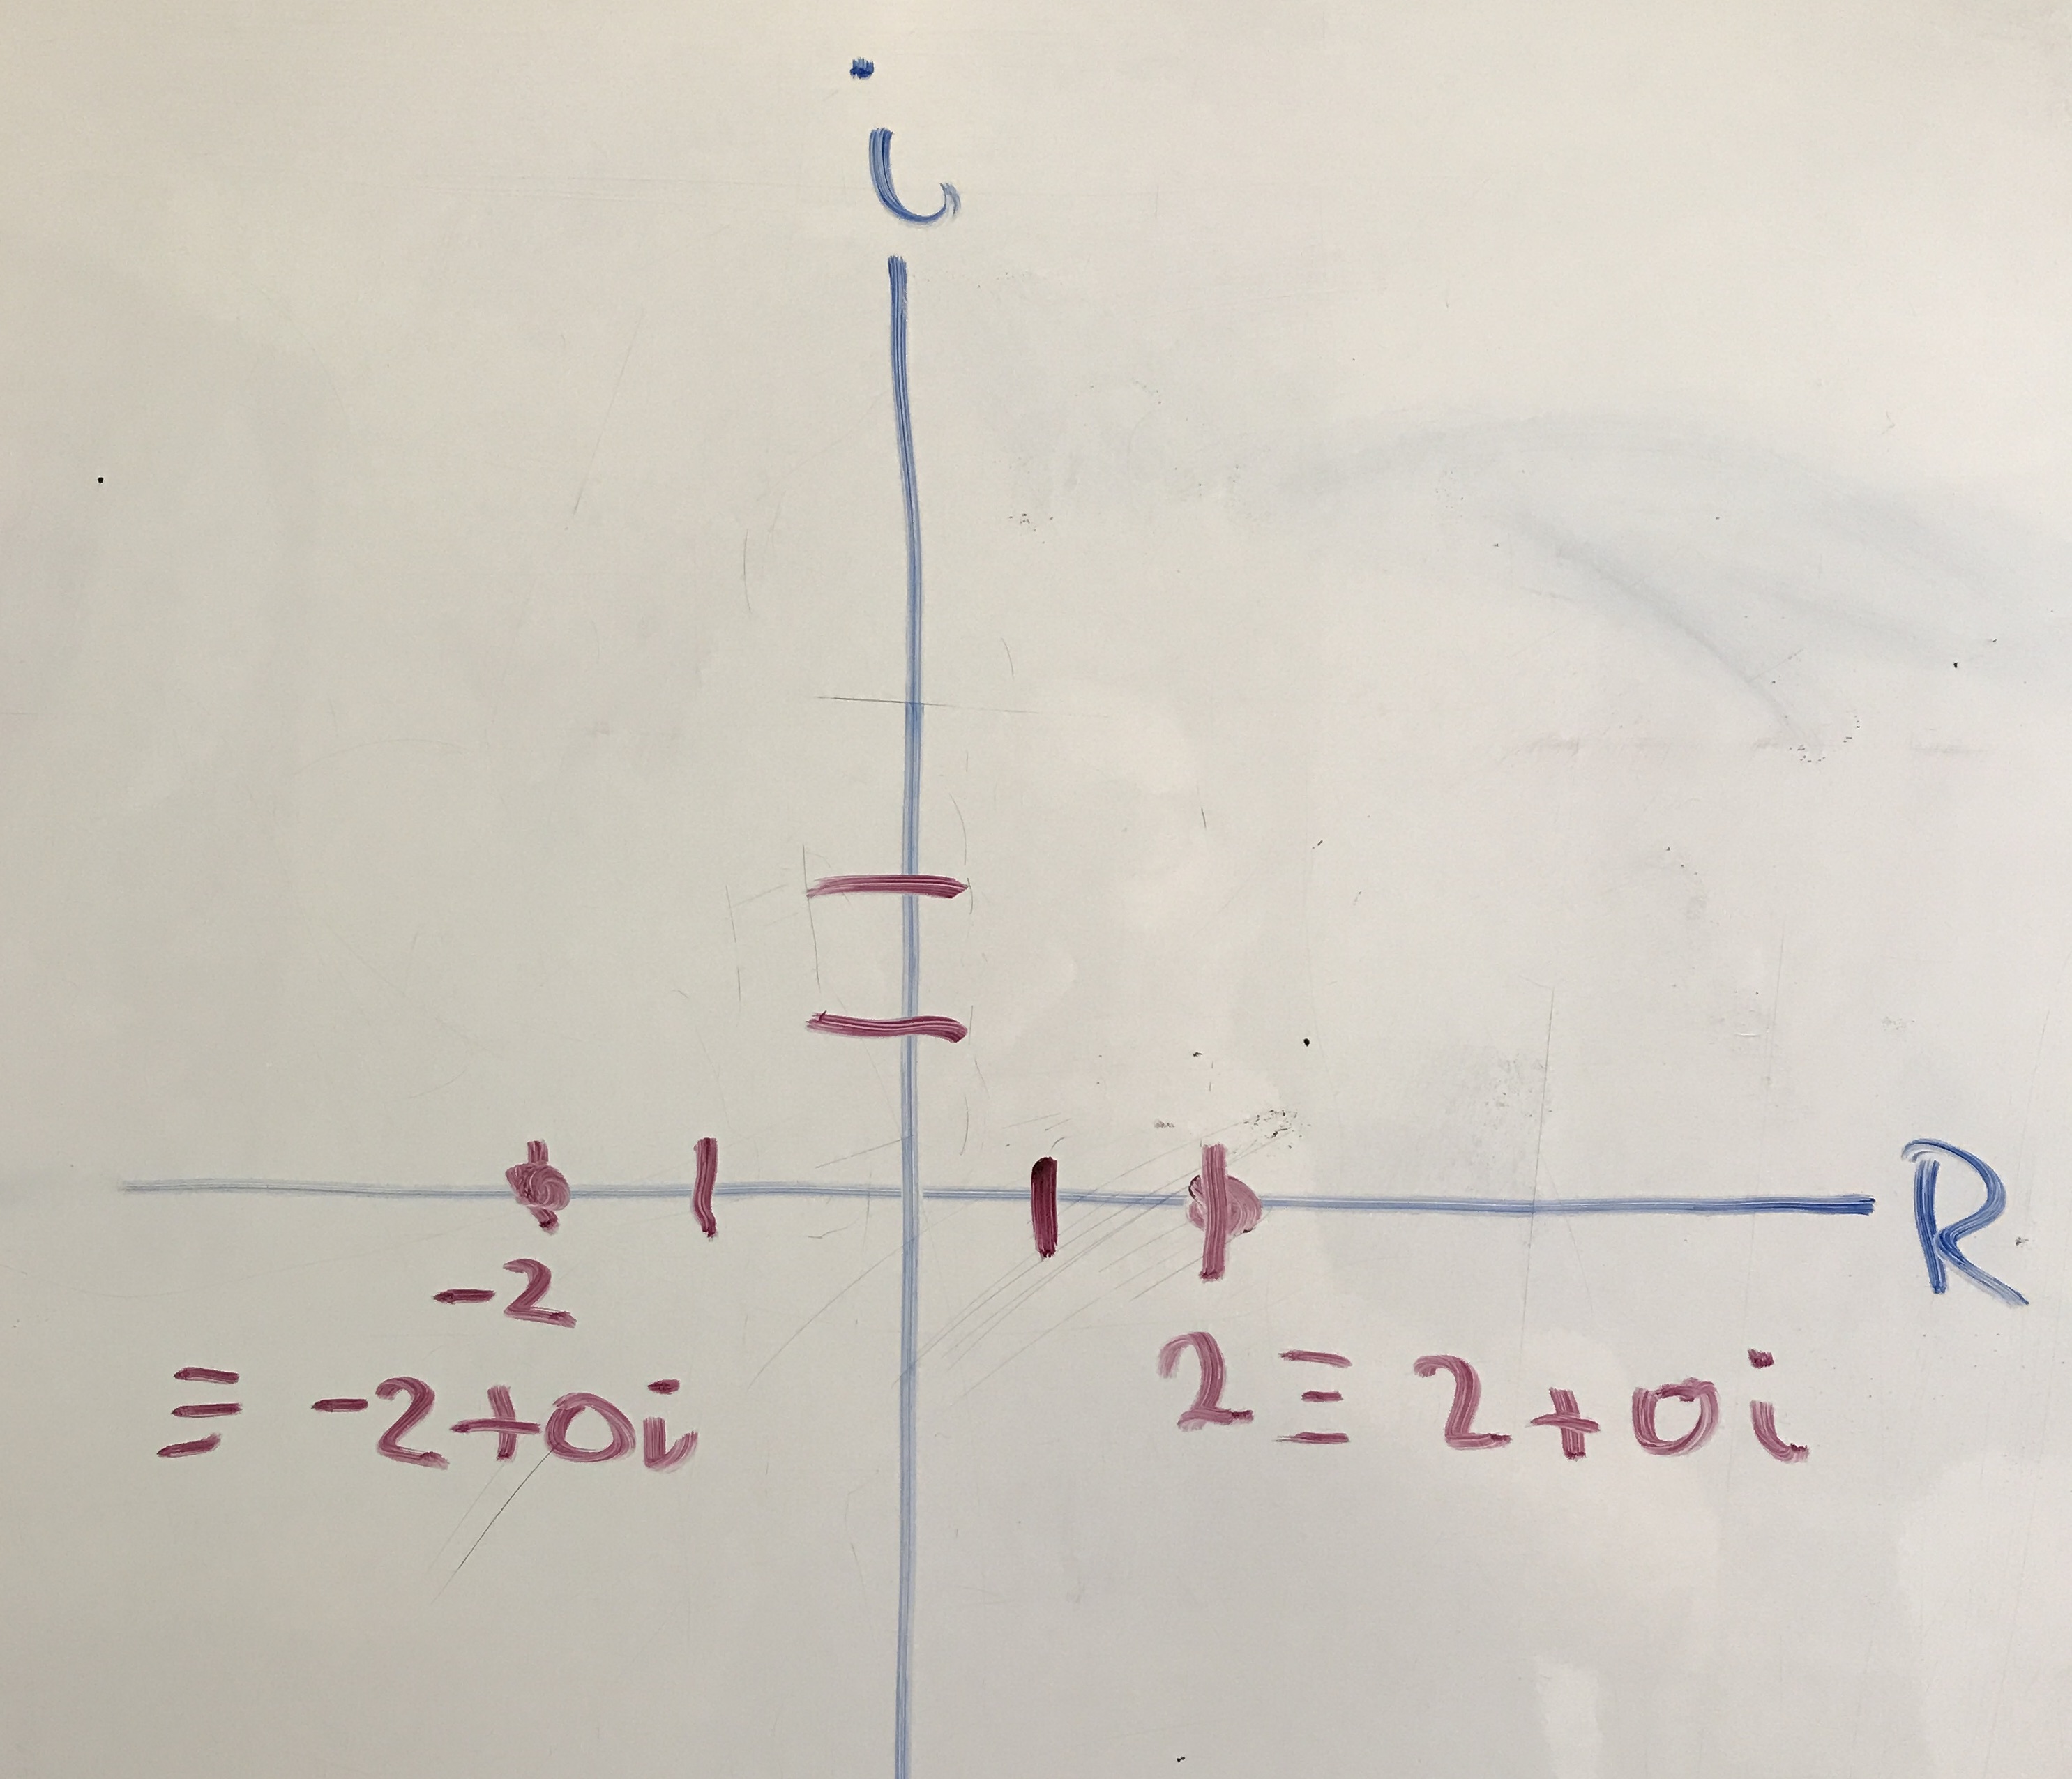 i
R
-2
≡ -2+0i
2 ≡ 2+0i